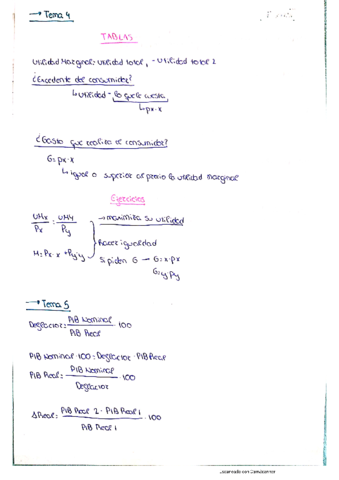 → Tema 4
TABLAS
Utilidad Marginal: utilidad total, - utilidad total 2
¿Excedente del consumidor?
↳ utilidad - lo que le cuesta
↳ px·x
¿Gasto que realiza el consumidor?
G = px·x
↳ igual o superior al precio la utilidad marginal
Ejercicios
UMx/Px = UMy/Py → maximiza su utilidad
hacer igualdad
M = Px·x + Py·y
Si piden G → G = x·px
G = y·Py
→ Tema 5
Deflactor = PIB Nominal / PIB Real · 100
PIB Nominal · 100 = Deflactor · PIB Real
PIB Real = PIB Nominal / Deflactor · 100
Δ Real = PIB Real 2 - PIB Real 1 / PIB Real 1 · 100
Escaneado con CamScanner